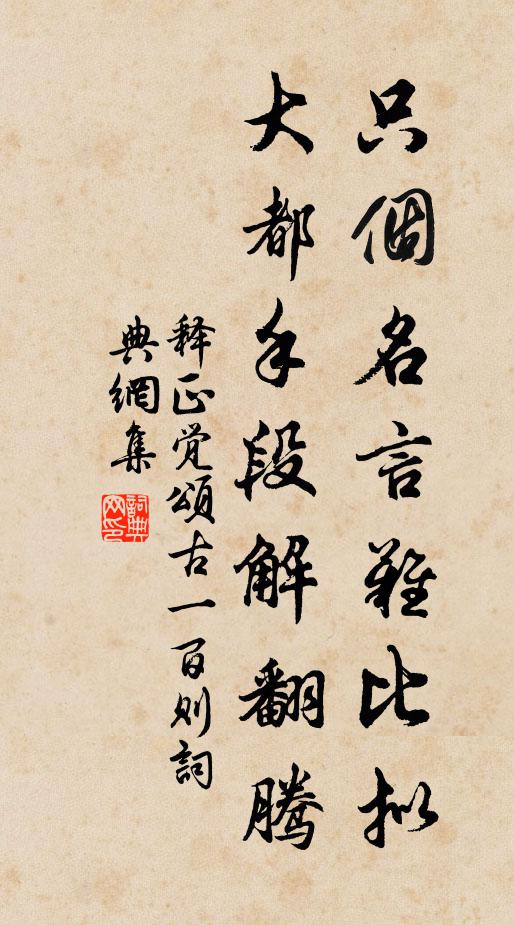 只個名言難比拟
大都手段解翻騰
释正觉頌古一百则詞
典網集
詞典网印